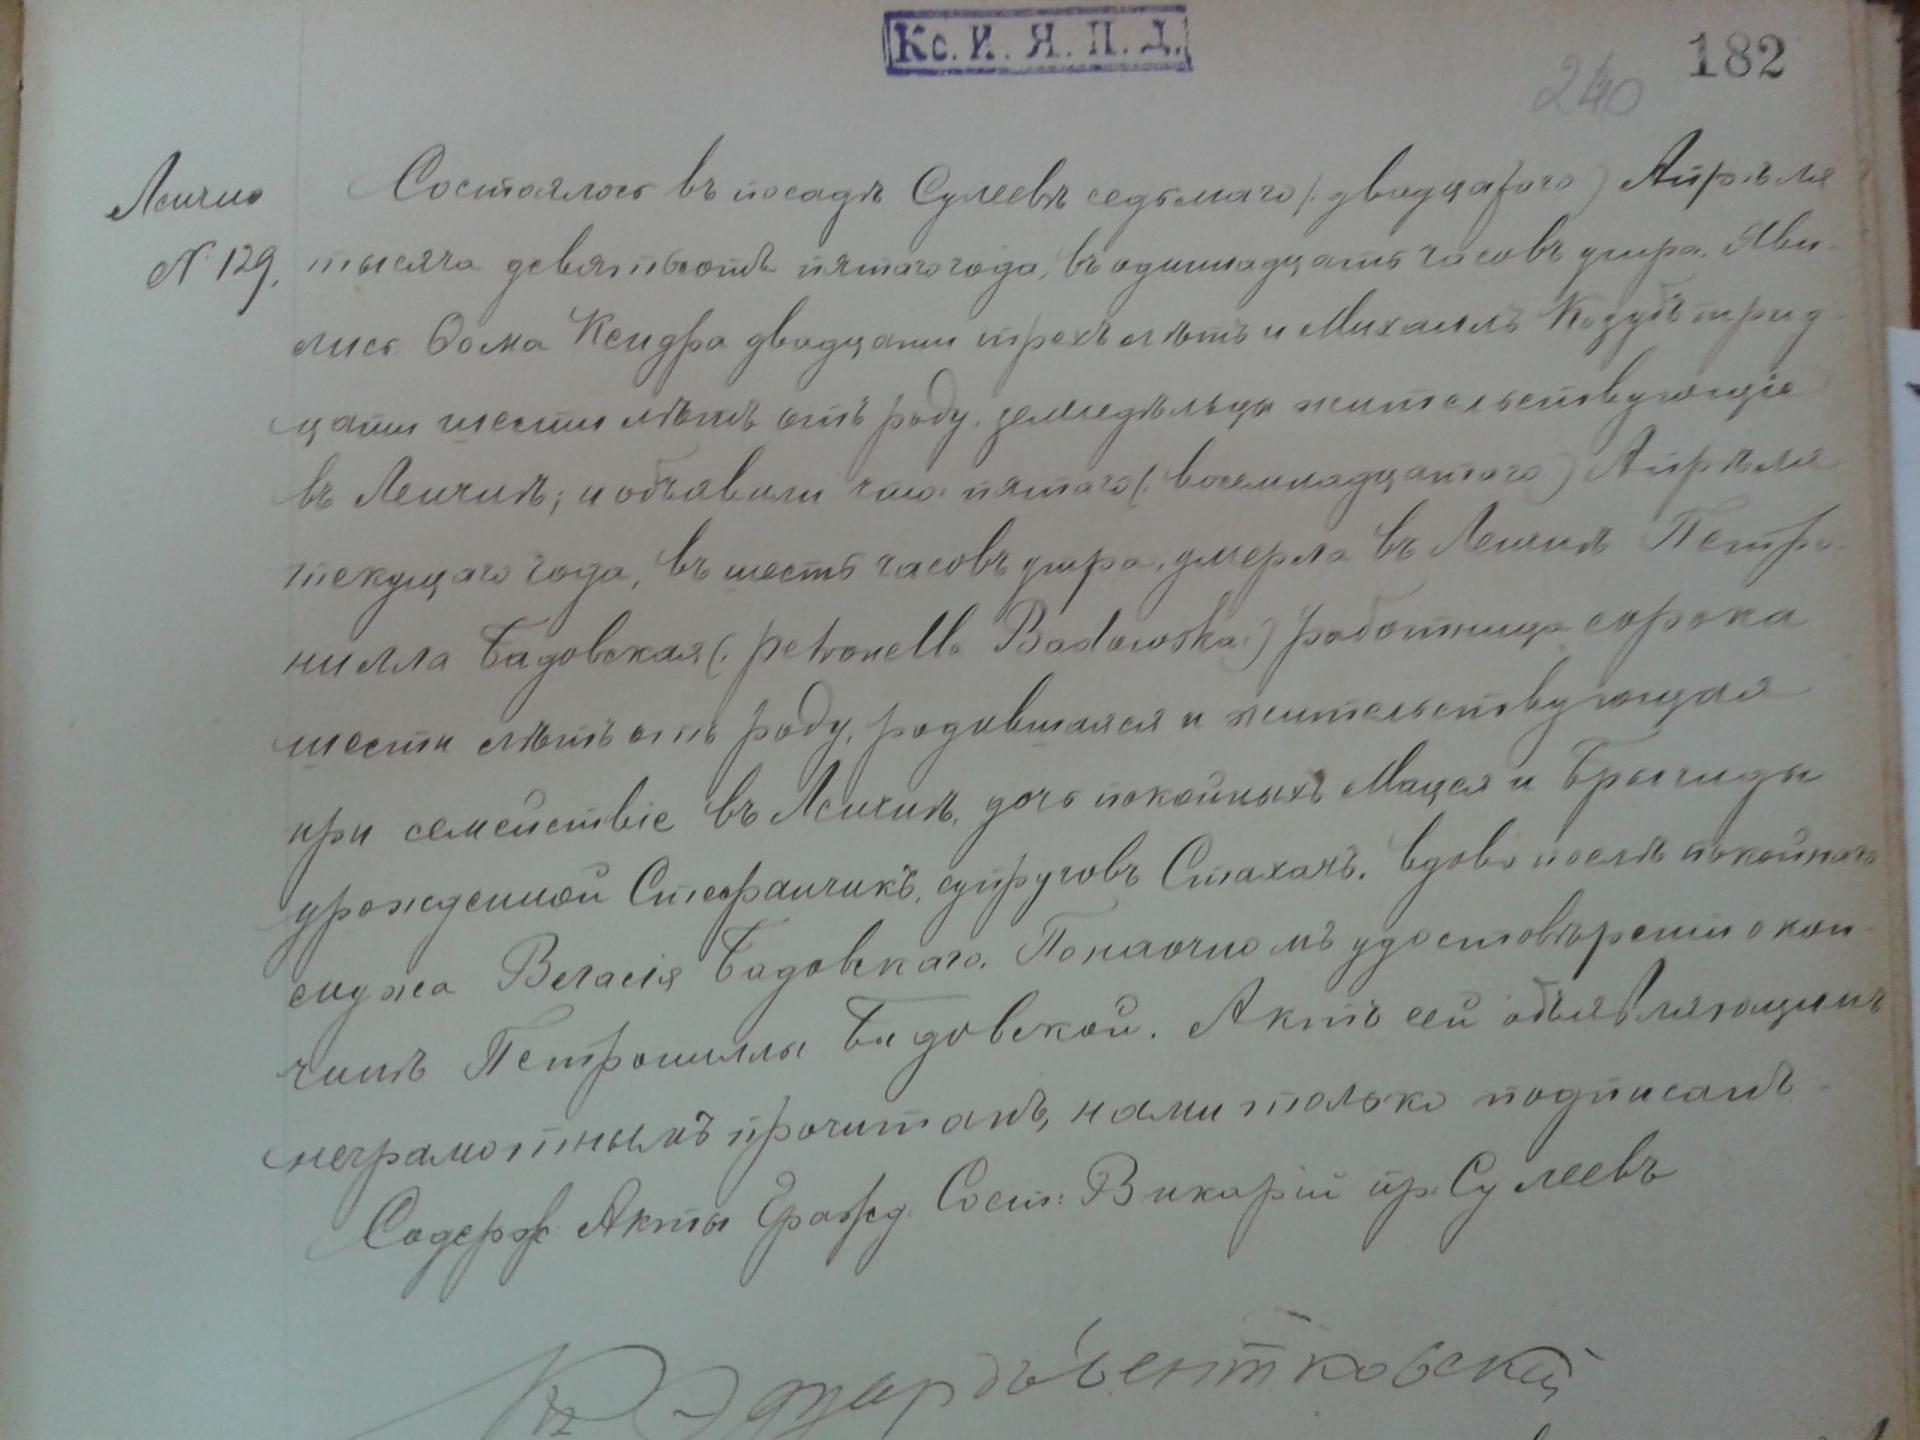 Кс. И. Я. П. Д.
182
240
Лѣично
N 129.
Состоялось въ посадѣ Сулеевѣ седьмаго (: двадцатого) Апрѣля
тысяча девятьсотъ пятаго года, въ одиннадцать часовъ утра. Яви-
лись Ѳома Кендра двадцати трехъ лѣтъ и Михаилъ Козубъ трид-
цати шести лѣтъ отъ роду, земледѣльцы жительствующіе
въ Лѣичнѣ; и объявили что пятаго (: восемнадцатого) Апрѣля
текущаго года, въ шесть часовъ утра, умерла въ Петро-
нилла Бадовская (: Petronella Badowska :) работница сорока
шести лѣтъ отъ роду, родившаяся и жительствующая
при семействіе въ дочь покойныхъ Мацея и Бригиды
урожденной Стефанчикъ, супруговъ Стахачъ. Вдова послѣ покойнаго
мужа Бадовскаго. По наочномъ удостовѣреніи о кон-
чинѣ Петрониллы Бадовской. Актъ сей объявляющимъ
неграмотнымъ прочитанъ, нами только подписанъ.
Содерж. Акты Гражд. Сост: Викарій пр. Сулеевъ
Кс Эдуардъ